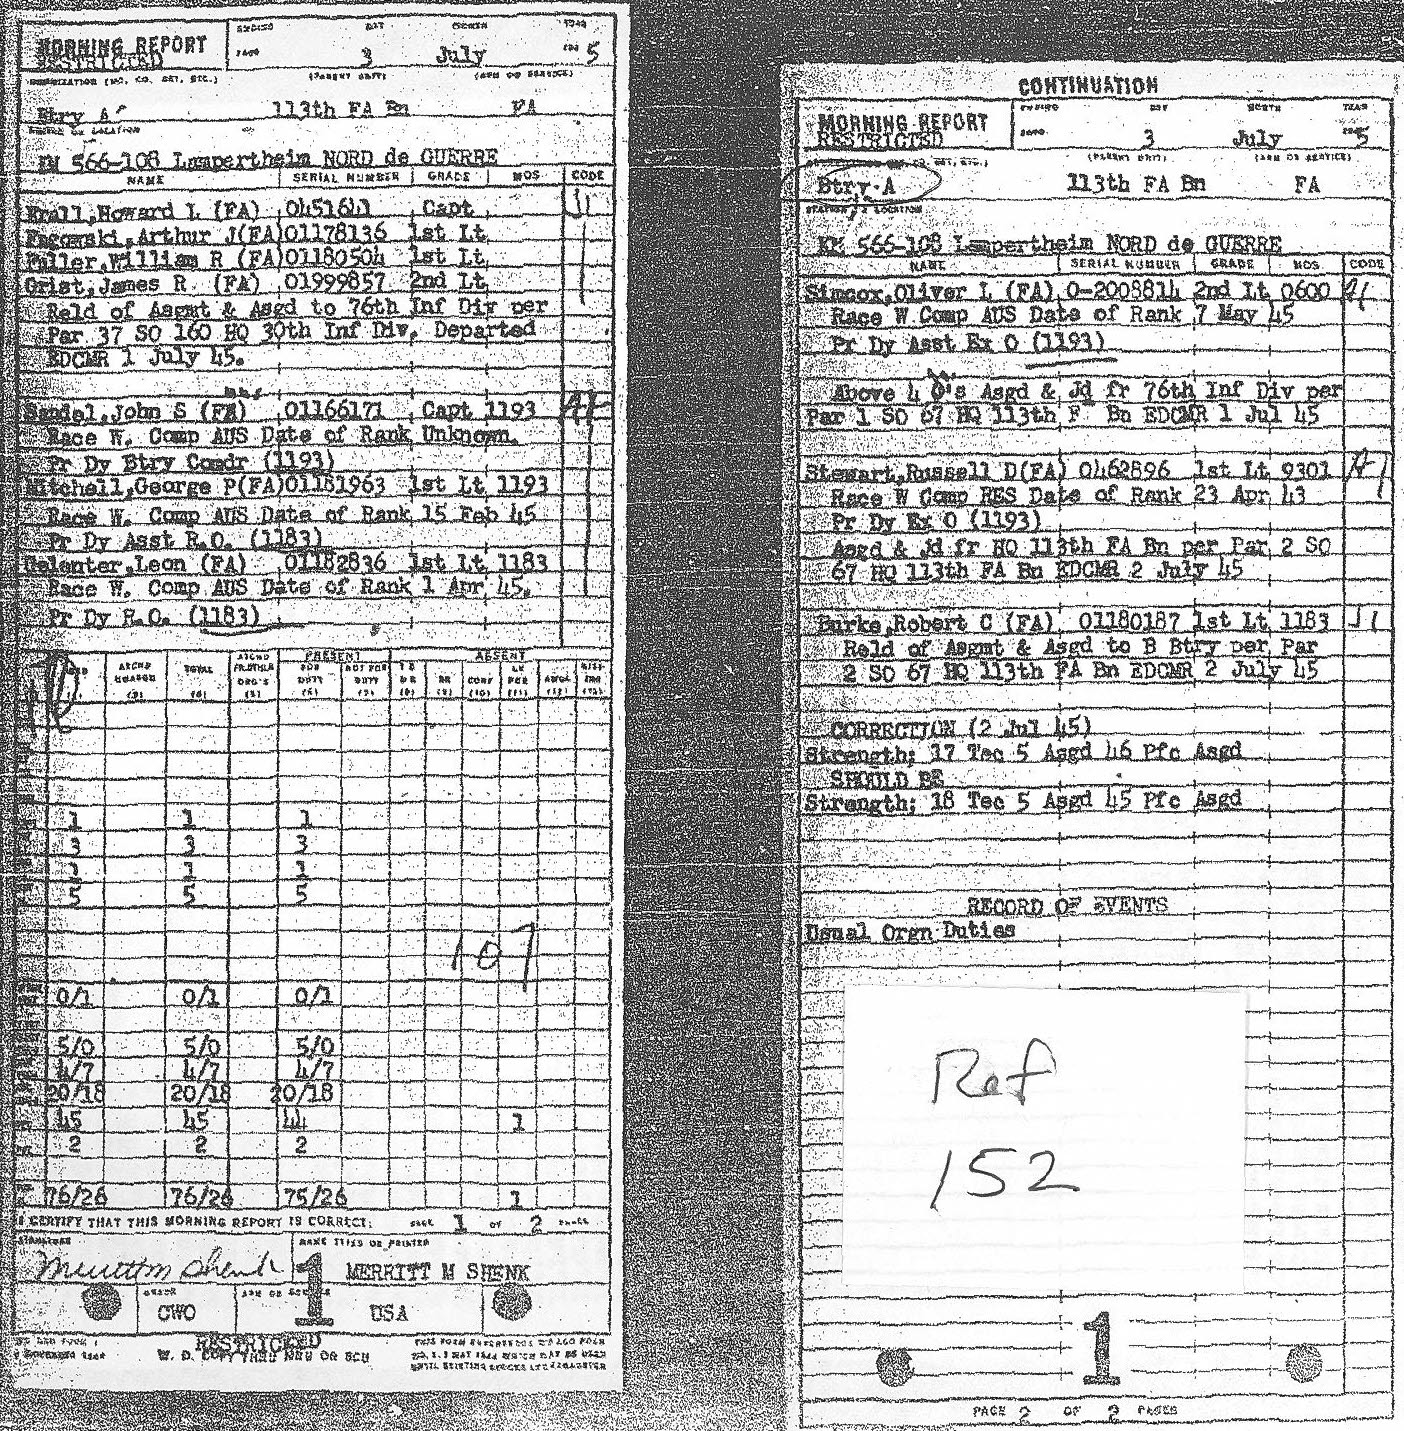 MORNING REPORT
RESTRICTED
ENDING DAY MONTH YEAR
3 July 5
ORGANIZATION (NO. CO. DET, ETC.) (PARENT UNIT) (ARM OR SERVICE)
Btry A 113th FA Bn FA
KM 566-108 Lampertheim NORD de GUERRE
NAME SERIAL NUMBER GRADE MOS CODE
Krall,Howard L (FA) 0451641 Capt
Pagowski,Arthur J(FA)01178136 1st Lt
Fuller,William R (FA)01180504 1st Lt
Grist,James R (FA) 01999857 2nd Lt
Reld of Asgmt & Asgd to 76th Inf Div per
Par 37 SO 160 HQ 30th Inf Div, Departed
EDCMR 1 July 45.
Sandel,John S (FA) 01166171 Capt 1193
Race W. Comp AUS Date of Rank Unknown.
Pr Dy Btry Comdr (1193)
Mitchell,George P(FA)01181963 1st Lt 1193
Race W. Comp AUS Date of Rank 15 Feb 45
Pr Dy Asst R.O. (1183)
Gelenter,Leon (FA) 01182836 1st Lt 1183
Race W. Comp AUS Date of Rank 1 Apr 45.
Pr Dy R.O. (1183)
PRESENT ABSENT
TOTAL FOR DUTY NOT FOR DUTY CONF AWOL
1 1 1
3 3 3
1 1 1
5 5 5
107
0/1 0/1 0/1
5/0 5/0 5/0
4/7 4/7 4/7
20/18 20/18 20/18
45 45 44 1
2 2 2
76/26 76/26 75/26 1
I CERTIFY THAT THIS MORNING REPORT IS CORRECT: PAGE 1 OF 2 PAGES
SIGNATURE NAME TYPED OR PRINTED
Merritt M Shenk MERRITT M SHENK
GRADE ARM OR SERVICE
CWO 1 USA
RESTRICTED
W. D. COPY THRU MRU OR SCU
CONTINUATION
MORNING REPORT
RESTRICTED
DAY MONTH YEAR
3 July 5
(PARENT UNIT) (ARM OR SERVICE)
Btry A 113th FA Bn FA
STATION OR LOCATION
KM 566-108 Lampertheim NORD de GUERRE
NAME SERIAL NUMBER GRADE MOS CODE
Simcox,Oliver L (FA) O-2008814 2nd Lt 0600
Race W Comp AUS Date of Rank 7 May 45
Pr Dy Asst Ex O (1193)
Above 4 O's Asgd & Jd fr 76th Inf Div per
Par 1 SO 67 HQ 113th F Bn EDCMR 1 Jul 45
Stewart,Russell D(FA) 0462896 1st Lt 9301
Race W Comp RES Date of Rank 23 Apr 43
Pr Dy Ex O (1193)
Asgd & Jd fr HQ 113th FA Bn per Par 2 SO
67 HQ 113th FA Bn EDCMR 2 July 45
Burke,Robert C (FA) 01180187 1st Lt 1183
Reld of Asgmt & Asgd to B Btry per Par
2 SO 67 HQ 113th FA Bn EDCMR 2 July 45
CORRECTION (2 Jul 45)
Strength; 17 Tec 5 Asgd 46 Pfc Asgd
SHOULD BE
Strength; 18 Tec 5 Asgd 45 Pfc Asgd
RECORD OF EVENTS
Usual Orgn Duties
Ref
152
1
PAGE 2 OF 2 PAGES